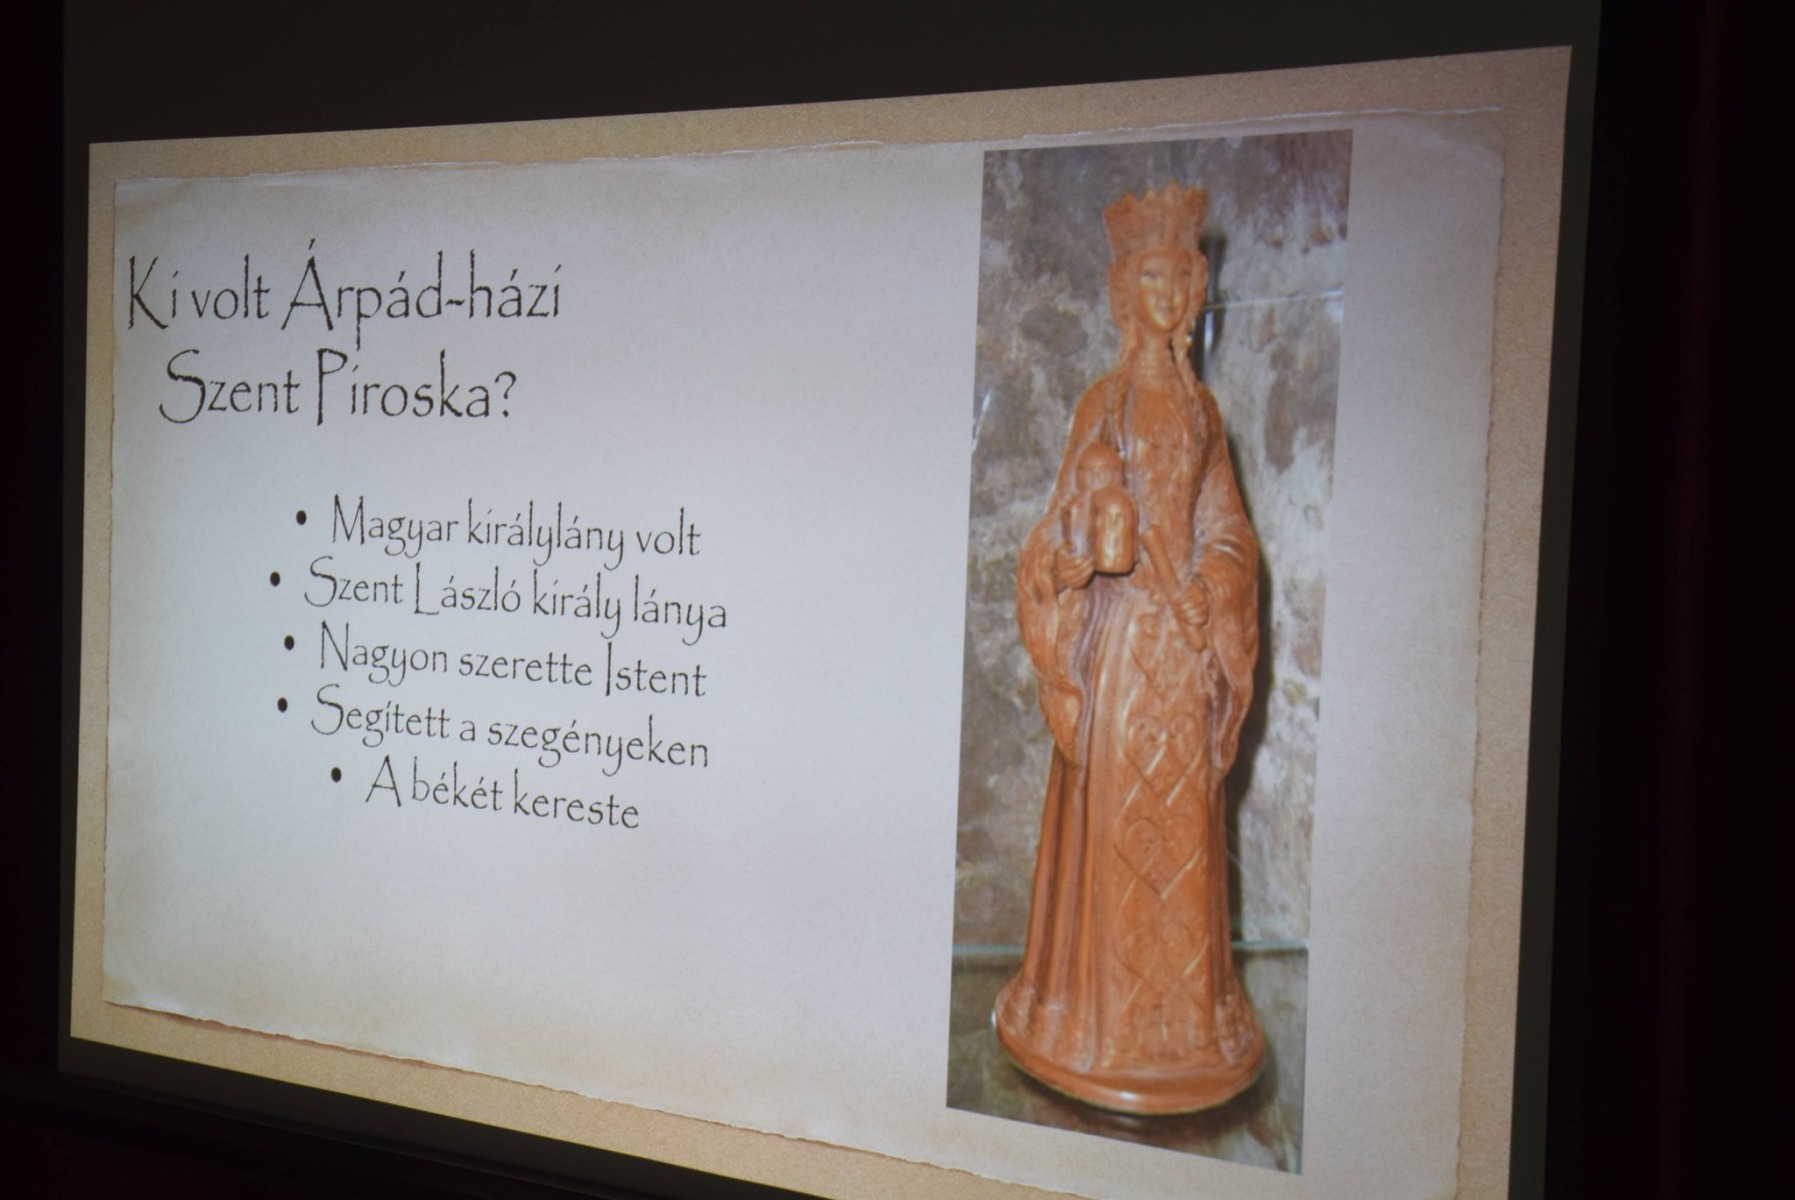 Ki volt Árpád-házi
Szent Piroska?
• Magyar királylány volt
• Szent László király lánya
• Nagyon szerette Istent
• Segített a szegényeken
• A békét kereste